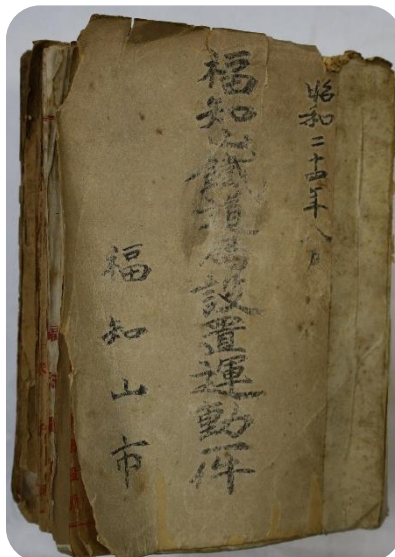 昭和二十五年八月
福知山鐵道局設置運動一件
福知山市